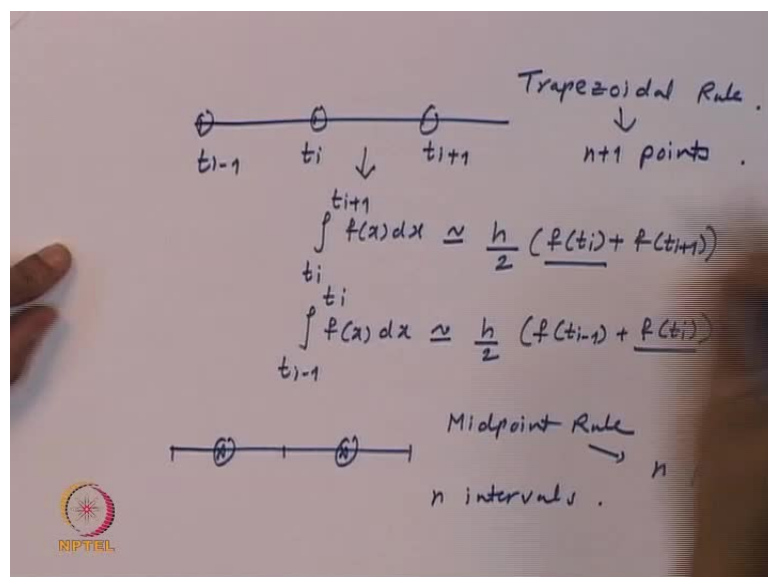 Trapezoidal Rule.
↓
n+1 points.
t_{i-1} t_i t_{i+1}
↓
∫_{t_i}^{t_{i+1}} f(x) dx ≃ h/2 (f(t_i) + f(t_{i+1}))
∫_{t_{i-1}}^{t_i} f(x) dx ≃ h/2 (f(t_{i-1}) + f(t_i))
Midpoint Rule
n
n intervals.
NPTEL